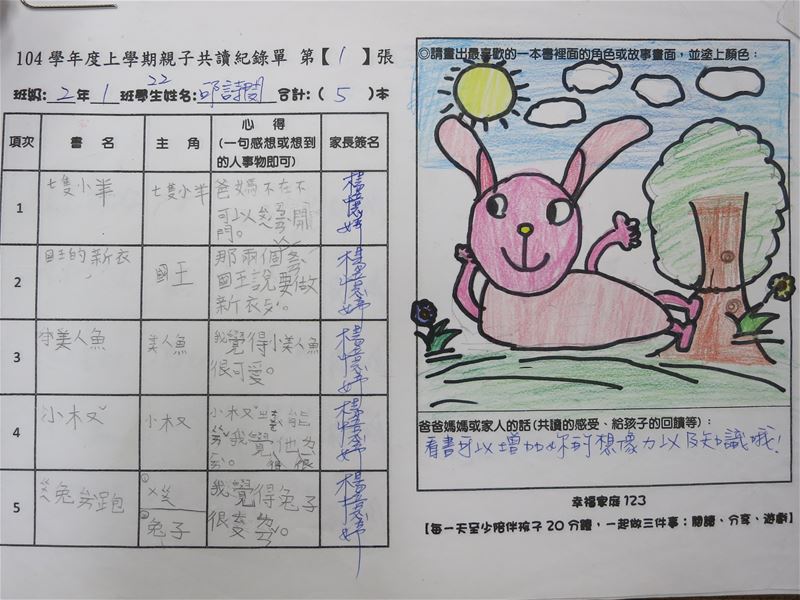 104學年度上學期親子共讀紀錄單 第【1】張
班級:2年1班學生姓名:22 邱詩 合計:(5)本
項次 書 名 主 角 心 得 家長簽名
(一句感想或想到
的人事物即可)
1 七隻小羊 七隻小羊 爸媽不在不
可以 開
門。
2 國王的新衣 國王 那兩個
國王說要做
新衣
3 美人魚 美人魚 我覺得小美人魚
很可愛。
4 小木又ˇ 小木又 小木又ˇ 能
我覺 他
很
5 ㄍ兔ㄞ跑 ① ㄨㄍ 我覺得兔子
② 兔子 很
◎請畫出最喜歡的一本書裡面的角色或故事畫面,並塗上顏色:
爸爸媽媽或家人的話(共讀的感受、給孩子的回饋等):
看書可以增加你的想像力以及知識哦!
幸福家庭 123
【每一天至少陪伴孩子 20 分鐘,一起做三件事:閱讀、分享、遊戲】